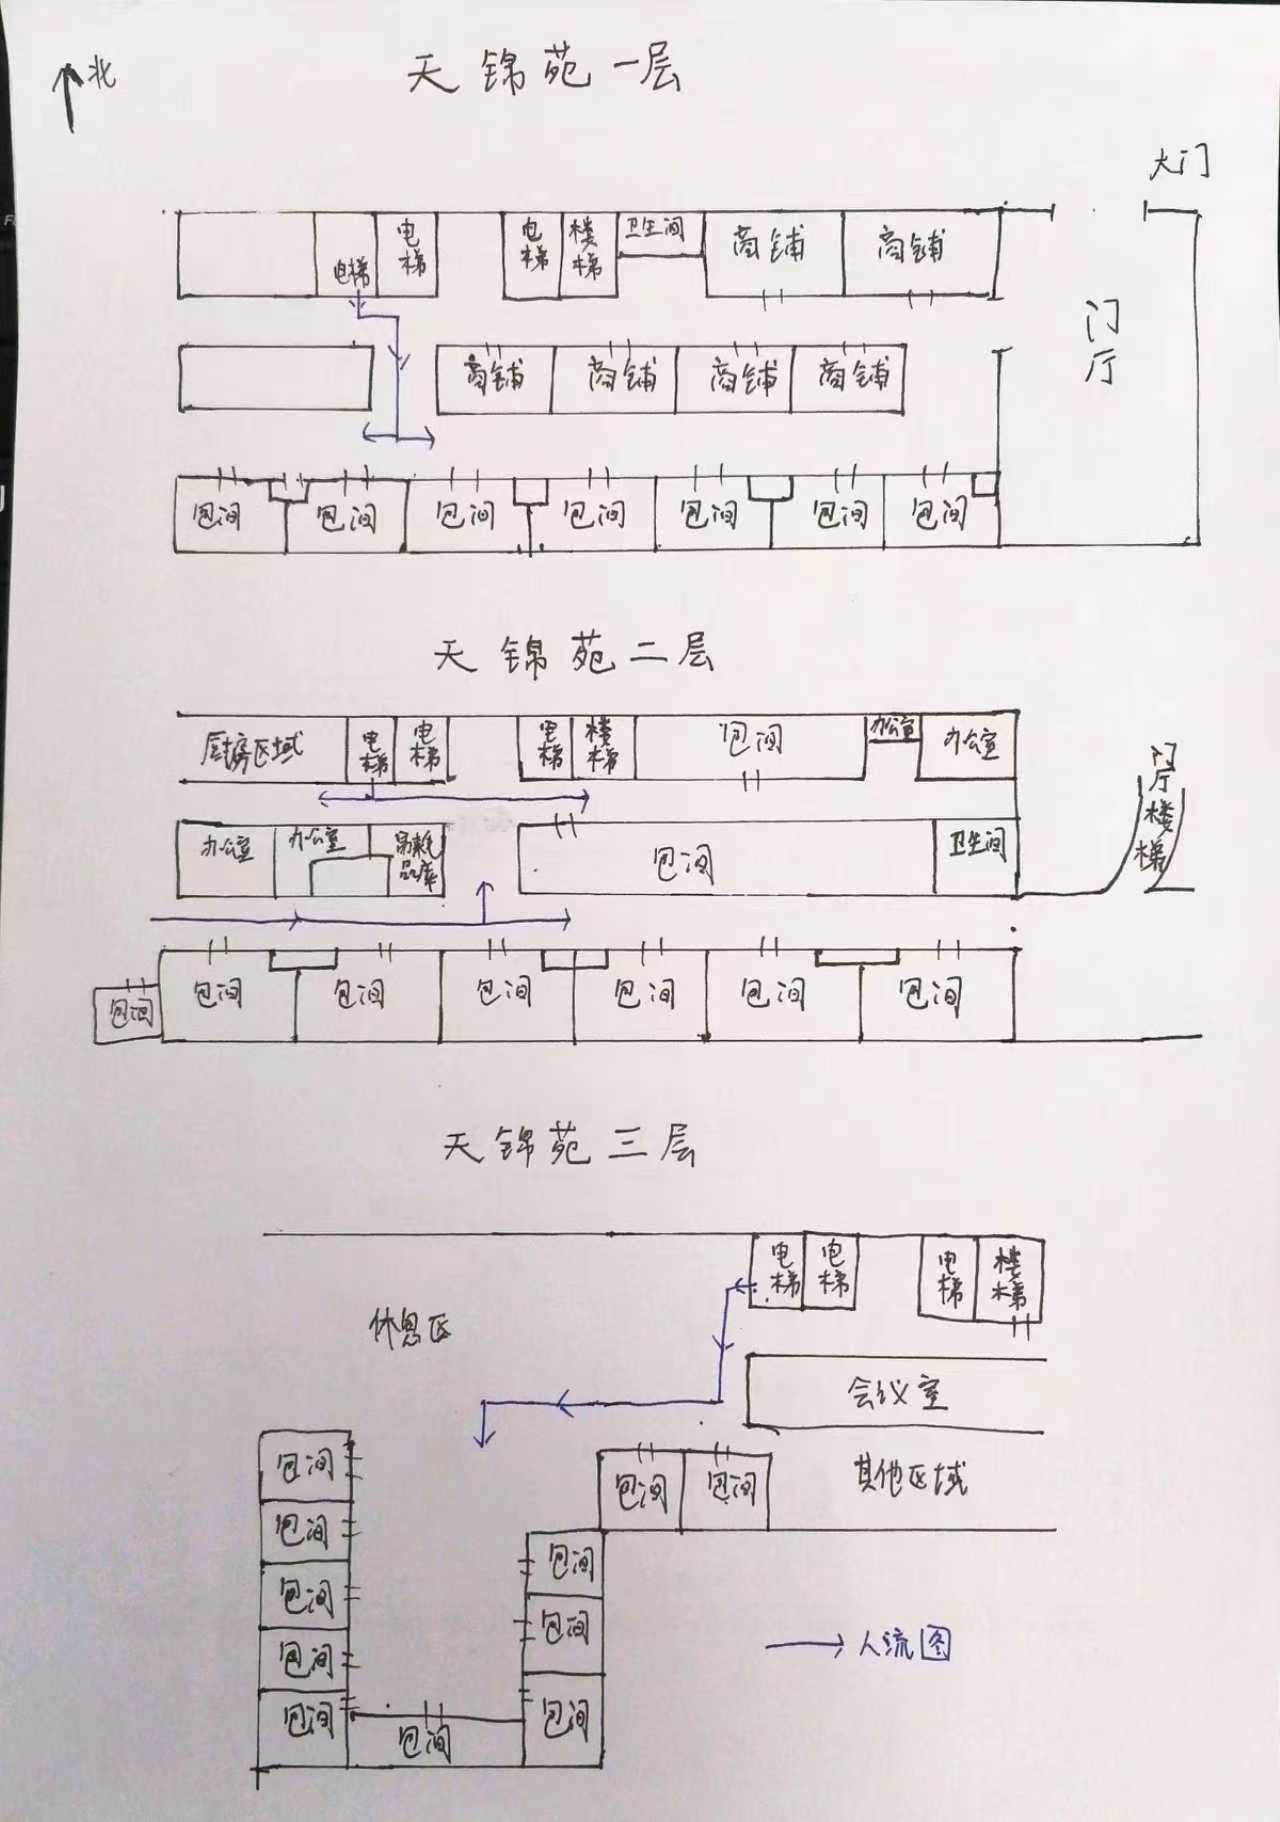 北
天锦苑一层
大门
电梯
电梯
电梯
楼梯
卫生间
商铺
商铺
门厅
商铺
商铺
商铺
商铺
包间
包间
包间
包间
包间
包间
包间
天锦苑二层
厨房区域
电梯
电梯
电梯
楼梯
包间
办公室
办公室
门厅楼梯
办公室
办公室
易耗品库
包间
卫生间
包间
包间
包间
包间
包间
包间
包间
天锦苑三层
电梯
电梯
电梯
楼梯
休息区
会议室
包间
包间
包间
其他区域
包间
包间
包间
包间
包间
包间
包间
包间
包间
人流图